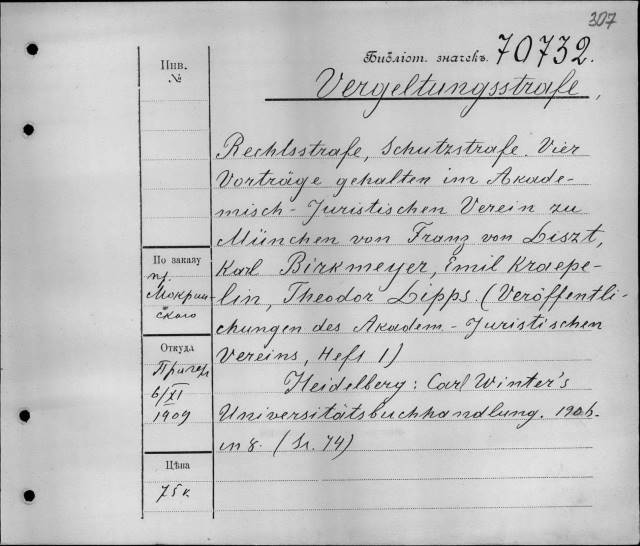 307
Библіот. значекъ. 70732.
Инв.
№
Vergeltungsstrafe,
Rechtsstrafe, Schutzstrafe. Vier
Vorträge gehalten im Akade-
misch-Juristischen Verein zu
München von Franz von Liszt,
Karl Birkmeyer, Emil Kraepe-
lin, Theodor Lipps. (Veröffentli-
chungen des Akadem-Juristischen
Vereins, Heft 1)
Heidelberg: Carl Winter's
Universitätsbuchhandlung. 1906.
in 8. (Sr. 74)
По заказу
пр.
Мокрин-
скаго
Откуда
6/XI
1909
Цѣна
75 к.